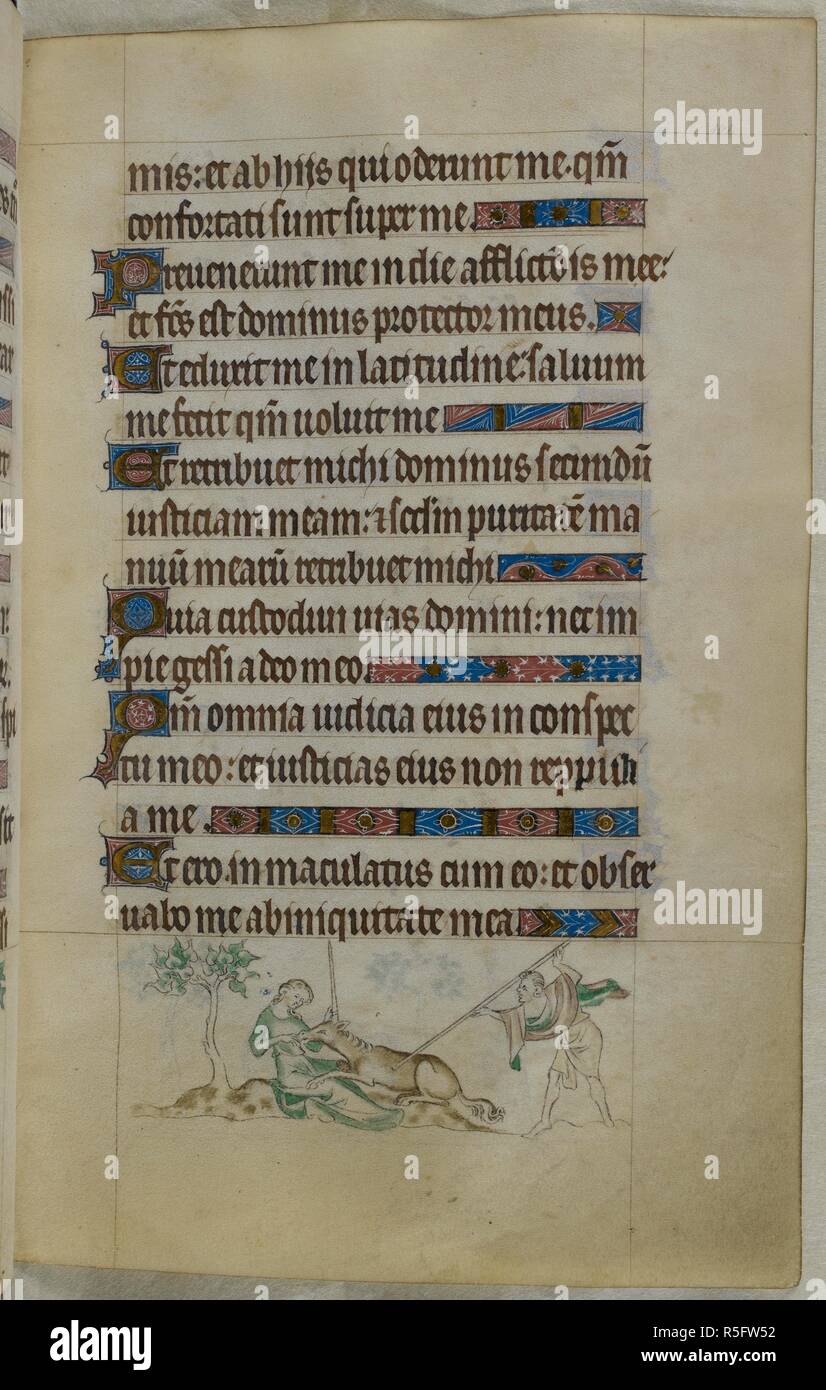 mis: et ab hijs qui oderunt me. qm̄
confortati sunt super me.
Preuenerunt me in die afflictōis mee:
et fc̄s est dominus protector meus.
Et eduxit me in latitudine: saluum
me fecit qm̄ uoluit me
Et retribuet michi dominus secundū
iusticiam meam: ⁊ scd̄m puritatē ma
nuū mearū retribuet michi
Quia custodiui uias domini: nec im
pie gessi a deo meo.
Qm̄ omnia iudicia eius in conspec
tu meo: et iusticias eius non reppuli
a me.
Et ero inmaculatus cum eo: et obser
uabo me ab iniquitate mea
alamy
alamy
Image ID: R5FW52
www.alamy.com